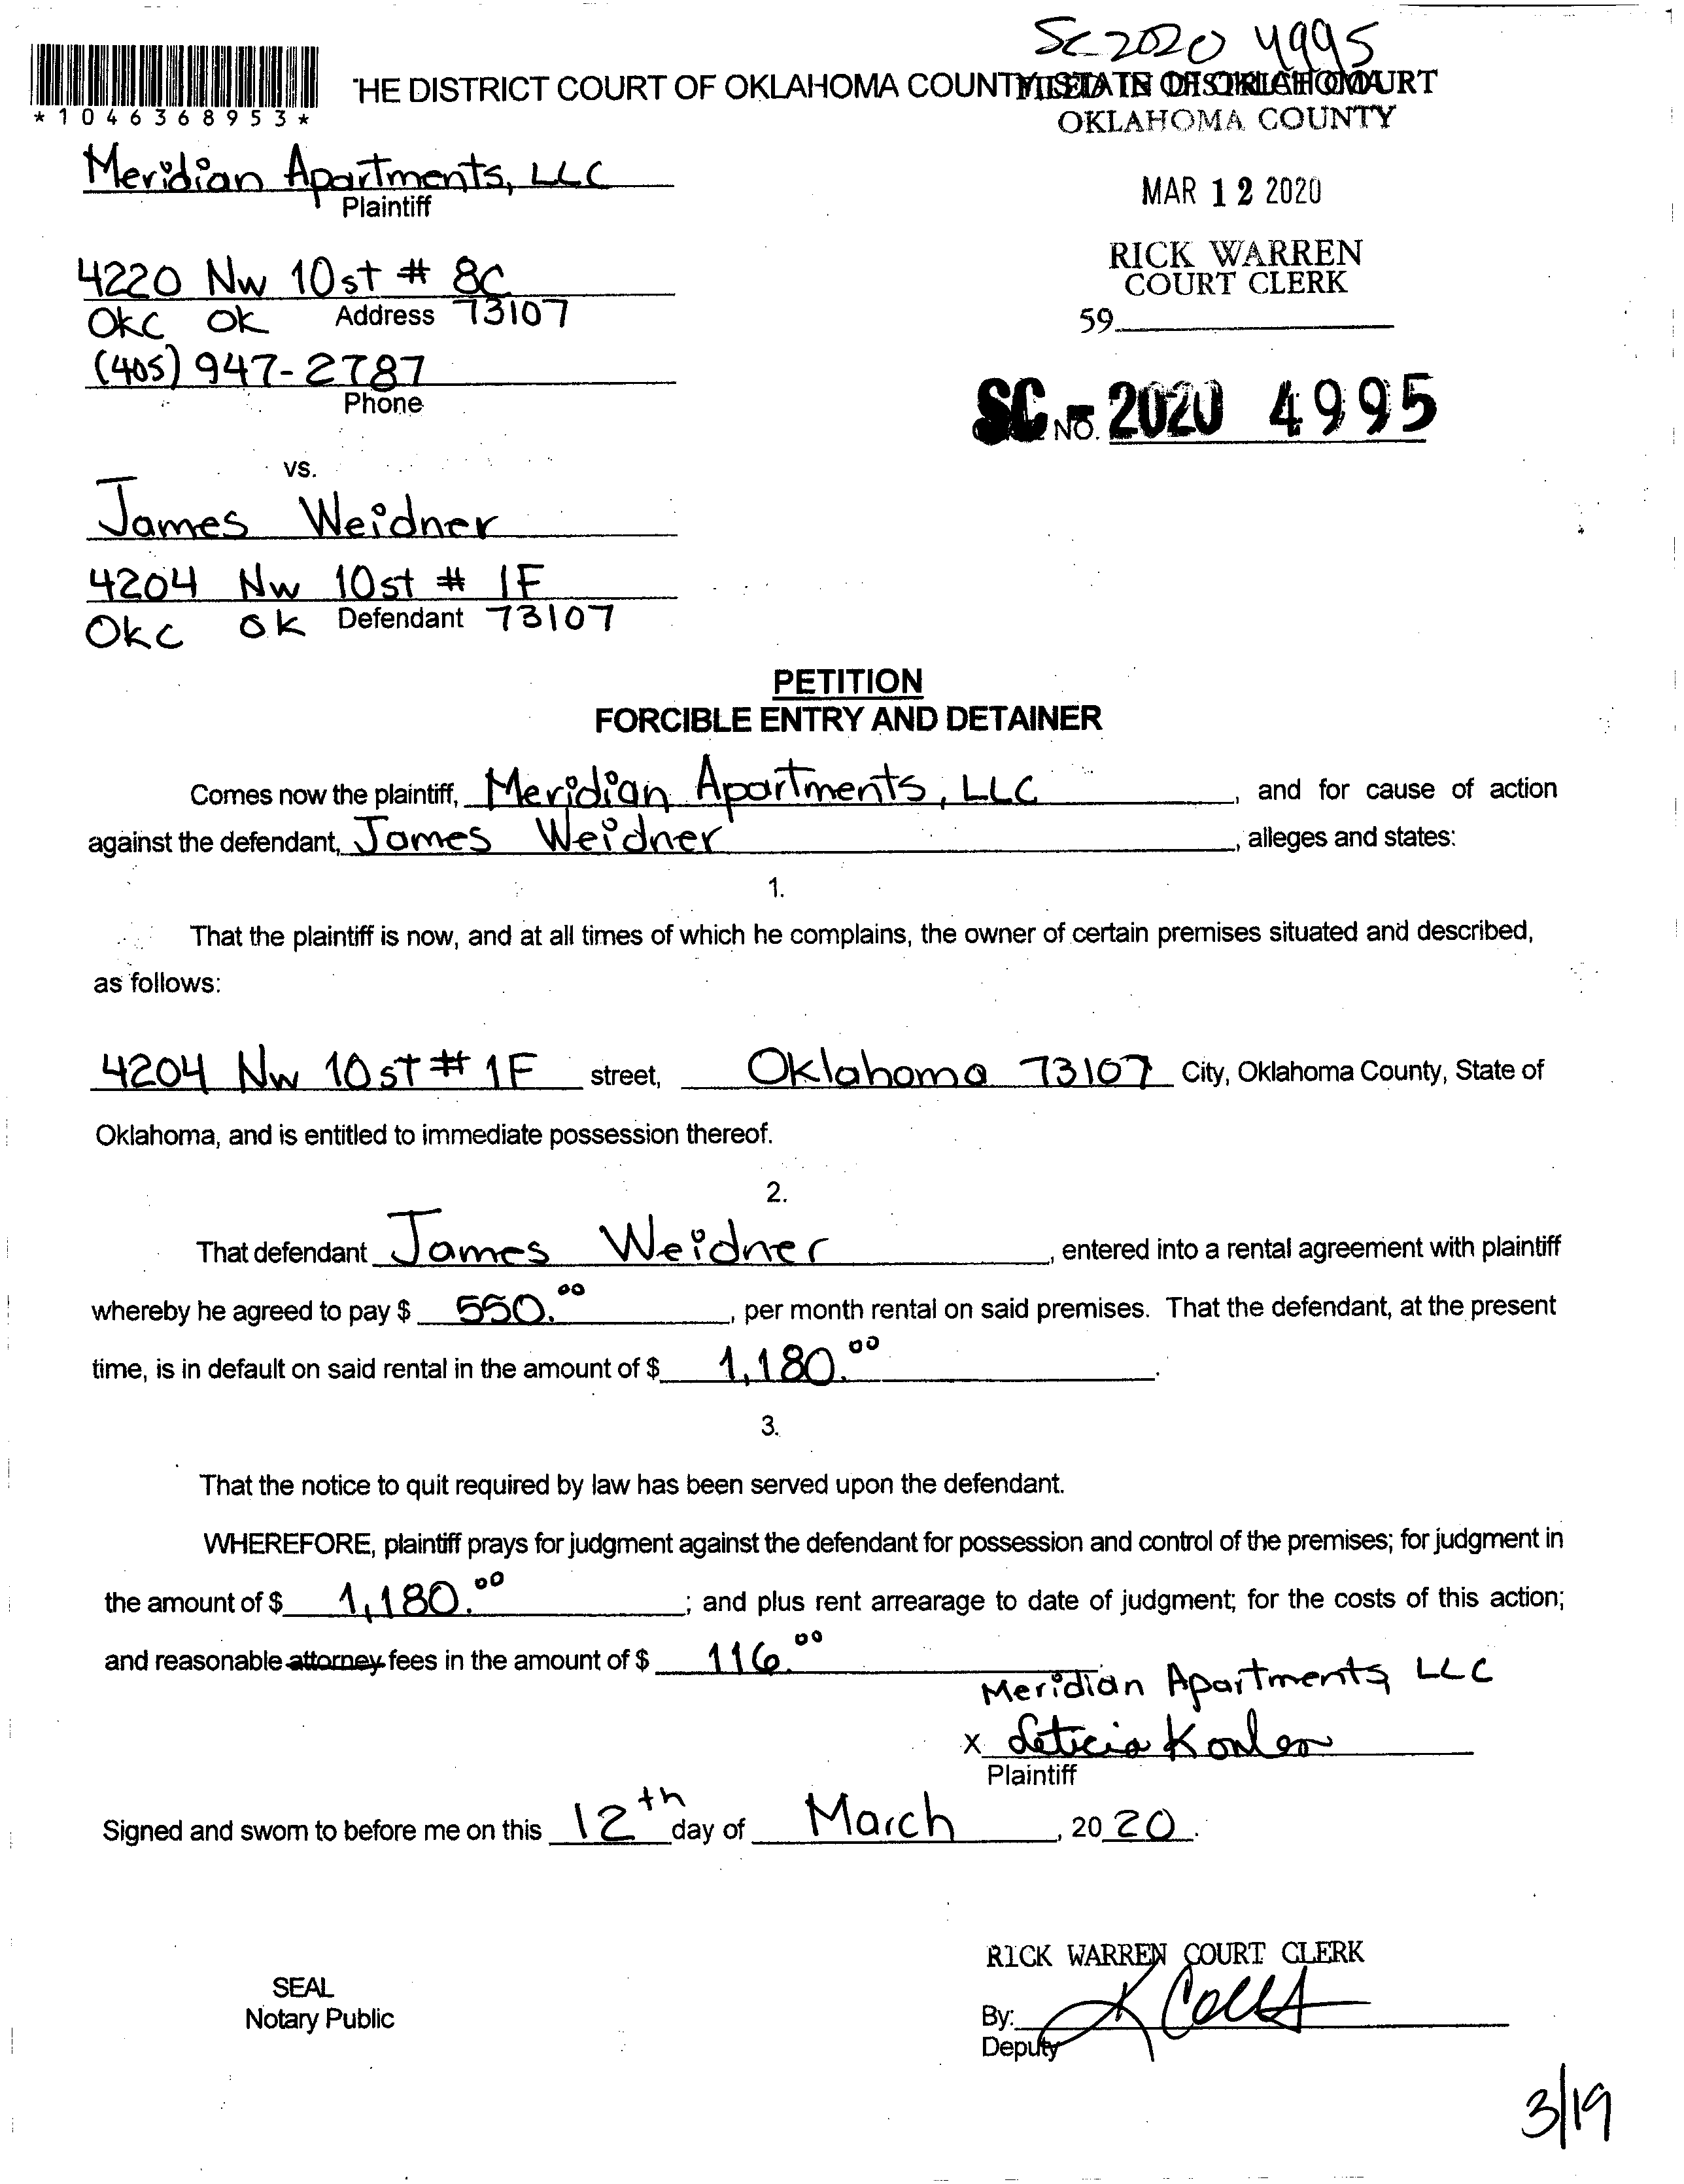 SC-2020 4995
THE DISTRICT COURT OF OKLAHOMA COUNTY, STATE OF OKLAHOMA
FILED IN DISTRICT COURT
OKLAHOMA COUNTY
*1046368953*
Meridian Apartments, LLC
Plaintiff
MAR 12 2020
RICK WARREN
COURT CLERK
4220 NW 10st # 8C
OKC OK Address 73107
59
(405) 947-2787
Phone
SC - NO. 2020 4995
vs.
James Weidner
4204 NW 10st # 1F
OKC OK Defendant 73107
PETITION
FORCIBLE ENTRY AND DETAINER
Comes now the plaintiff, Meridian Apartments, LLC, and for cause of action
against the defendant, James Weidner, alleges and states:
1.
That the plaintiff is now, and at all times of which he complains, the owner of certain premises situated and described,
as follows:
4204 NW 10st # 1F street, Oklahoma 73107 City, Oklahoma County, State of
Oklahoma, and is entitled to immediate possession thereof.
2.
That defendant James Weidner, entered into a rental agreement with plaintiff
whereby he agreed to pay $ 550.00, per month rental on said premises. That the defendant, at the present
time, is in default on said rental in the amount of $ 1,180.00.
3.
That the notice to quit required by law has been served upon the defendant.
WHEREFORE, plaintiff prays for judgment against the defendant for possession and control of the premises; for judgment in
the amount of $ 1,180.00; and plus rent arrearage to date of judgment; for the costs of this action;
and reasonable attorney fees in the amount of $ 116.00
Meridian Apartments, LLC
x Leticia
Plaintiff
Signed and sworn to before me on this 12th day of March, 2020.
RICK WARREN COURT CLERK
SEAL
Notary Public
By:
Deputy
3/19